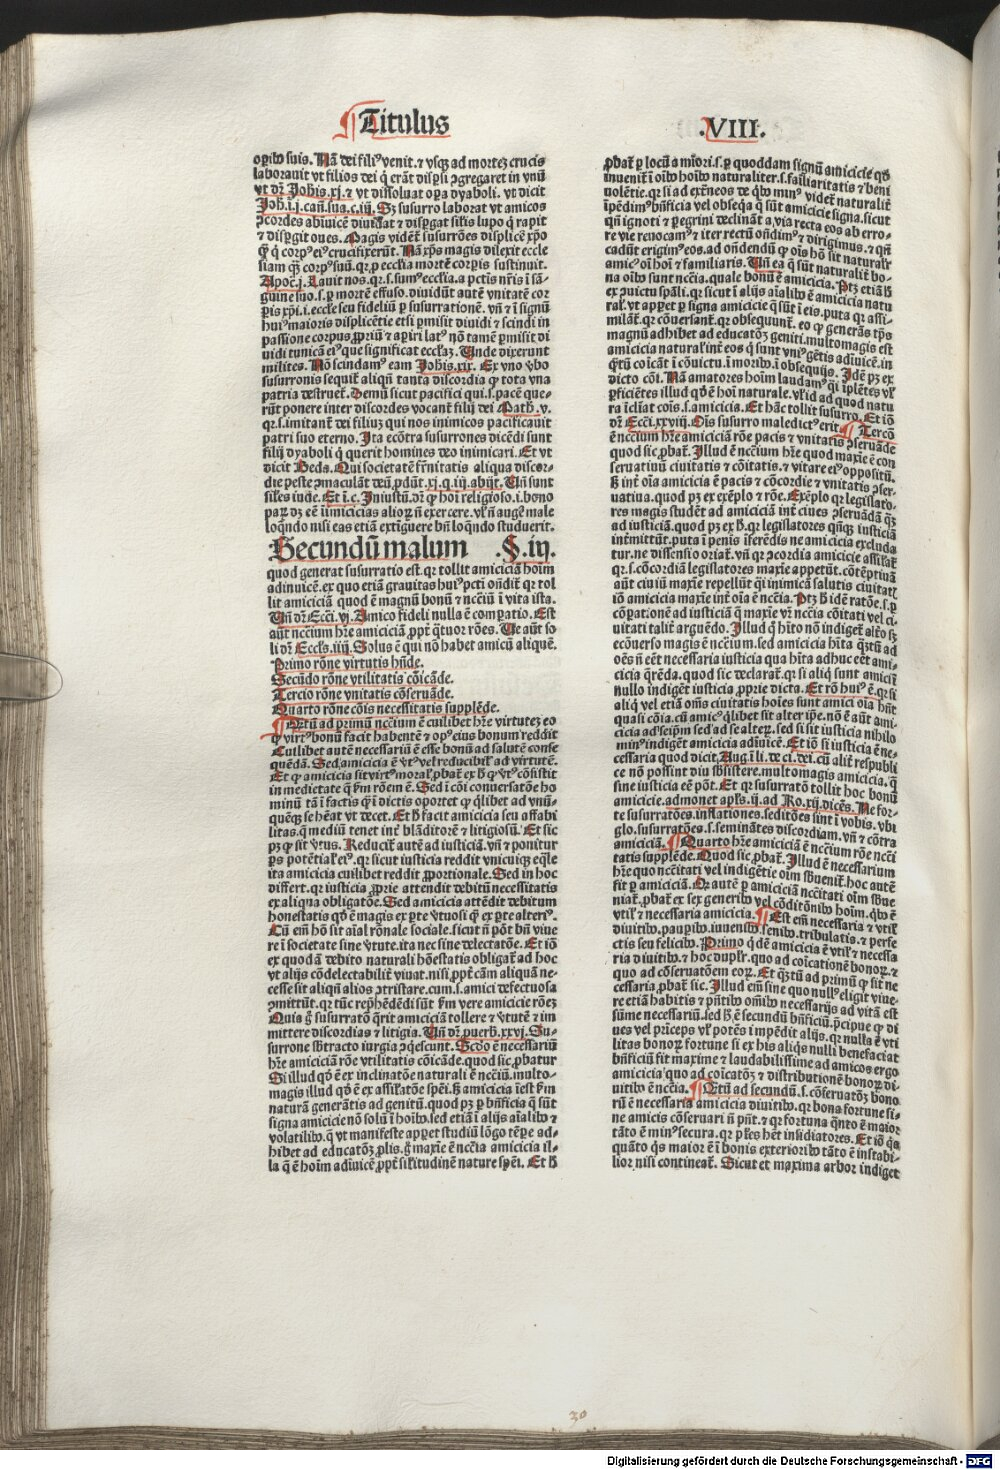 ¶Titulus
.VIII.
oꝑibꝰ suis. Nā dei filiꝰ venit. ⁊ vsqꝫ ad mortez crucis
laborauit vt filios dei q̇ erāt dispsi ꝯgregaret in vnū
vt dr̄ Johis.xj.⁊ vt dissoluat oꝑa dyaboli. vt dicit
Joh.i.j.cań.sua.c.iij. Sꝫ susurro laborat vt amicos
ꝯcordes abinuicē diuidat ⁊ dispgat silis lupo q̇ rapit
⁊ dispgit oues. Magis videt̄ susurrōes displicē xp̄o
ꝙ q̇ corpꝰ eiꝰ crucifixerūt. Nā xp̄s magis dilexit eccle
siam qꝫ corpꝰ suū. qr ꝓ ecclia mortē corpis sustinuit.
Apoc̄.j. Lauit nos.qr.s.sumꝰ ecclia.a pctis nr̄is ī sā-
guine suo.s.ꝑ mortē effuso. diuidūt autē vnitatē cor
pis xp̄i.i.eccle seu fideliū ꝑ susurrationē. vn̄ ⁊ ī signū
huiꝰ maioris displicētie etsi ꝑmisit diuidi ⁊ scindi in
passione corpus ꝓpriū ⁊ aꝑiri latꝰ nō tamē ꝑmisit di
uidi tunicā eiꝰ que significat ecclaz. Unde dixerunt
milites. Nō scindamꝰ eam Johis.xix. Ex vno vbo
susurronis sequit̄ aliqn̄ tanta discordia ꝙ tota vna
patria destruet̄. Demū sicut pacifici qui.s.pacē que-
rūt ponere inter discordes vocant̄ filij dei Math̄.v.
qr.s.imitant̄ dei filiuz qui nos inimicos pacificauit
patri suo eterno. Ita ecōtra susurrones dicēdi sunt
filij dyaboli q̇ querit homines deo inimicari. Et vt
dicit Beda. Qui societatē fr̄nitatis aliqua discor-
die peste ꝯmaculāt deū ꝓdūt.xj.q.iij.abijt. Un̄ sunt
siles iude. Et ī.c. Iniustū. dr̄ ꝙ hoi religioso.i.bono
paꝝ dꝫ eē īimicicias alioꝝ n̄ exercere. vl̄ n̄ auge male
loquēdo nisi eas etiā extīguere bn̄ loquēdo studuerit.
Secundū malum .§.iij.
quod generat susurratio est. qr tollit amiciciā hoīm
adinuicē.ex quo etiā grauitas huiꝰ pcti on̄dit̄ qr tol
lit amiciciā quod ē magnū bonū ⁊ nc̄ciū ī vita ista.
Un̄ dr̄ Ecci.vj. Amico fideli nulla ē comꝑatio. Est
aūt nccium hr̄e amiciciā ꝓpt̄ q̄tuor rōes. Ue aūt so
li dr̄ Eccls.iiij. Solus ē qui nō habet amicū aliquē.
Primo rōne virtutis hn̄de.
Secūdo rōne vtilitatis cōicāde.
Tercio rōne vnitatis cōseruāde.
Quarto rōne cōis necessitatis supplēde.
¶Qrtū ad primū nc̄ciū ē cuilibet hr̄e virtutez eo
ꝙ virtꝰ bonū facit habentē ⁊ opꝰ eius bonum reddit
Cuilibet autē necessariū ē esse bonū ad salutē conse
quēdā. Sed amicicia ē v̄tꝰ vel reducibil̄ ad virtutē.
Et ꝙ amicicia sit virtꝰ moral̄ ꝓbat̄ ex ħ ꝙ v̄tꝰ cōsistit
in medietate q̄ fm̄ rōem ē. Sed ī cōi conuersatōe ho
minū tā ī factis qꝫ ī dictis oportet ꝙ q̇libet ad vnū-
quēqꝫ se hēat vt decet. Et ħ facit amicicia seu affabi
litas.q̄ mediū tenet int̄ blāditorē ⁊ litigiosū. Et sic
pꝫ ꝙ sit v̄tus. Reducit̄ autē ad iusticiā.vn̄ ⁊ ponitur
ps potētial̄ eiꝰ.qr sicut iusticia reddit vnicuiqꝫ eq̄le
ita amicicia cuilibet reddit ꝓportionale. Sed in hoc
differt.qr iusticia ꝓprie attendit debitū necessitatis
ex aliqua obligatōe. Sed amicicia attēdit debitum
honestatis qd̄ ē magis ex pte v̄tuosi qꝫ ex pte alteriꝰ.
Cū em̄ hō sit aīal rōnale sociale.sicut n̄ pōt bn̄ viue
re ī societate sine v̄tute.ita nec sine delectatōe. Et iō
ex quodā debito naturali hōestatis obligat̄ ad hoc
vt alijs cōdelectabilit̄ viuat.nisi ꝓpt̄ cām aliquā ne-
cesse sit aliqn̄ alios ꝯtristare.cum.s.amici defectuosa
ꝯmittūt.qr tūc rep̄hēdēdi sūt fm̄ vere amicicie rōez
Quis g̊ susurratō q̄rit amiciciā tollere ⁊ v̄tutē ⁊ im
mittere discordias ⁊ litigia. Un̄ dr̄ puerb̄.xxvj. Su-
surrone sb̄tracto iurgia ꝯq̇escunt. Scdo ē necessariū
hr̄e amiciciā rōe vtilitatis cōicāde.quod sic ꝓbatur
Si illud qd̄ ē ex inclinatōe naturali ē nc̄ciū.multo-
magis illud qd̄ ē ex assilatōe spēi.ħ amicicia īest fm̄
naturā generātis ad genitū.quod pꝫ ꝑ bn̄ficia q̄ sūt
signa amicicie nō solū ī hoibꝰ.sed etiā ī alijs aīalibꝰ ⁊
volatilibꝰ.q̄ vt manifeste apꝑet studiū lōgo tēꝑe ad-
hibet ad educatōꝫ ꝓlis.g̊ maxie ē nc̄cia amicicia il-
la q̄ ē hoīm adīuicē ꝓpt̄ silitudinē nature spēi. Et ħ
ꝓbat̄ ꝑ locū a mīori.s.ꝑ quoddam signū amicicie qd̄
inuenit̄ ī oibꝰ hoibꝰ naturaliter.s.failiaritatis ⁊ beni
uolētie.qr si ad extēneos de q̇bꝰ minꝰ videt̄ naturalit̄
īpēdimꝰ bn̄ficia vel obseqa q̄ sūt amicicie signa.sicut
qn̄ ignoti ⁊ ꝑegrini declināt a via recta eos ab erro-
re vie reuocamꝰ ⁊ iter rectū on̄dimꝰ ⁊ dirigimus.⁊ qn̄
cadūt erigimꝰ eos.ad on̄dendū ꝙ oīs hō sit naturalr̄
amicꝰ oī hoi ⁊ familiaris. Un̄ ea q̄ sūt naturalit̄ bo-
na oibꝰ sunt nc̄cia.quale bonū ē amicicia. Ptꝫ etiā ħ
ex ꝯuictu spāli.qr sicut ī alijs aīalibꝰ ē amicicia natu
ral̄.vt apꝑet ꝑ signa amicicie q̄ sūt ī eis.puta qr assi-
milāt̄.qr cōuersant̄.qr obsequunt̄.eo ꝙ generās tp̄s
magnū adhibet ad educatōꝫ geniti.multomagis est
amicicia natural̄ int̄ eos q̇ sunt vniꝰ gētis adīuicē.in
q̄tū cōicāt ī cōuictu.ī moribꝰ.ī obsequijs. Idē pꝫ ex
dicto cōi. Nā amatores hoīm laudamꝰ q̇i īplētes vl̄
ꝑficiētes illud qd̄ ē hoi naturale.vl̄ id ad quod natu
ra īcliat cois.s.amicicia. Et hāc tollit susurro. Et iō
dr̄ Ecci.xxviij. Ois susurro maledictꝰ erit ¶Tercō
ē nccium hr̄e amiciciā rōe pacis ⁊ vnitatis ꝯseruāde
quod sic ꝓbat̄. Illud ē nc̄cium hr̄e quod maxie ē con
seruatiuū ciuitatis ⁊ cōitatis.⁊ vitare eiꝰ oppositū.
ħ int̄ oīa amicicia ē pacis ⁊ cōcordie ⁊ vnitatis ꝯser-
uatiua.quod pꝫ ex exēplo ⁊ rōe. Exēplo qr legislato-
res magis studēt ad amiciciā int̄ ciues ꝯseruādā qꝫ
ad iusticiā.quod pꝫ ex ħ.qr legislatores qn̄qꝫ iusticiā
int̄mittūt.puta ī penis īferēdis ne amicicia excluda
tur.ne dissensio oriat̄.vn̄ qr ꝯcordia amicicie assilat̄
qr.s.cōcordiā legislatores maxie appetūt.cōtēptiuā
aūt ciuiū maxie repellūt q̇i inimicā salutis ciuitatꝭ
iō amicicia maxie int̄ oīa ē nc̄cia. Ptꝫ ħ idē ratōe.s.ꝑ
cōꝑationē ad iusticiā q̄ maxie vr̄ nc̄cia cōitati vel ci-
uitati talit̄ arguēdo. Illud q̇ hīto nō indiget alt̄o sꝫ
ecōuerso magis ē nc̄cium.sed amicicia hīta q̄ztū ad
oēs n̄ eēt necessaria iusticia qua hīta adhuc eēt ami-
cicia q̄rēda.quod sic declarat̄.qr si aliq̇ sunt amici ī
nullo indigēt iusticia ꝓprie dicta. Et rō huiꝰ ē.qr si
aliq̇ vel etiā om̄s ciuitatis hoīes sunt amici oīa hn̄t
quasi cōia.cū amicꝰ q̇libet sit alter ip̄e.nō ē aūt ami-
cicia ad seip̄m sed ad se alteꝝ.sed si sit iusticia nihilo
minꝰ indigēt amicicia adinuicē. Et iō si iusticia ē ne-
cessaria quod dicit Aug.ī li.de ci.dei.cū alit̄ respubli
ce nō possint diu sb̄sistere.multomagis amicicia.q̄
sine iusticia eē pōt. Et qr susurratō tollit hoc bonū
amicicie.admonet apl̄s.ij.ad Co.xij.dicēs. Ne for-
te susurratōes.inflationes.seditōes sint ī vobis. vbi
glo.susurratōes.s.seminātes discordiam.vn̄ ⁊ cōtra
amiciciā. ¶Quarto hr̄e amiciciā ē nc̄cium rōe ncci
tatis supplēde. Quod sic ꝓbat̄. Illud ē necessarium
hr̄e quo nc̄citati vel indigētie oīm sb̄uenit̄.hoc autē
fit ꝑ amiciciā. Qr autē ꝑ amiciciā nccitati oīm sb̄ue
niat̄.ꝓbat̄ ex sex generibꝰ vel cōditōnibꝰ hoīm.q̇bꝰ ē
vtil̄ ⁊ necessaria amicicia. ¶Est em̄ necessaria ⁊ vtil̄
diuitibꝰ.pauꝑibꝰ.iuuenibꝰ.senibꝰ.tribulatis.⁊ perfe
ctis seu felicibꝰ. Primo q̇dē amicicia ē vtil̄ ⁊ necessa
ria diuitibꝰ.⁊ hoc duplr̄.quo ad cōicationē bonoꝝ.⁊
quo ad cōseruatōem eoꝝ. Et q̄ztū ad primū ꝙ sit ne
cessaria ꝓbat̄ sic. Illud em̄ sine quo nullꝰ eligit viue-
re etiā habitis ⁊ pn̄tibꝰ om̄ibꝰ necessarijs ad vitā est
sūme necessariū.sed ħ ē secundū bn̄ficiū.p̄cipue ꝙ di
ues vel p̄nceps vl̄ potēs īpēdit alijs.qr nulla ē vti
litas bonoꝝ fortune si ex his aliq̇s nulli benefaciat
bn̄ficiū fit maxime ⁊ laudabilissime ad amicos ergo
amicicia quo ad cōicatōꝫ ⁊ distributionē bonoꝝ di-
uitibꝰ ē nc̄cia. ¶Qrtū ad secundū.s.cōseruatōꝫ bono
rū ē necessaria amicicia diuitibꝰ.qr bona fortune si-
ne amicis cōseruari n̄ pn̄t.⁊ qr fortuna q̄nto ē maior
tāto ē minꝰ secura.qr plēs het īsidiatores. Et iō q̄a
quāto q̇s maior ē ī bonis exterioribꝰ tāto ē instabi-
lior nisi contineat̄. Sicut et maxima arbor indiget
30
Digitalisierung gefördert durch die Deutsche Forschungsgemeinschaft - DFG